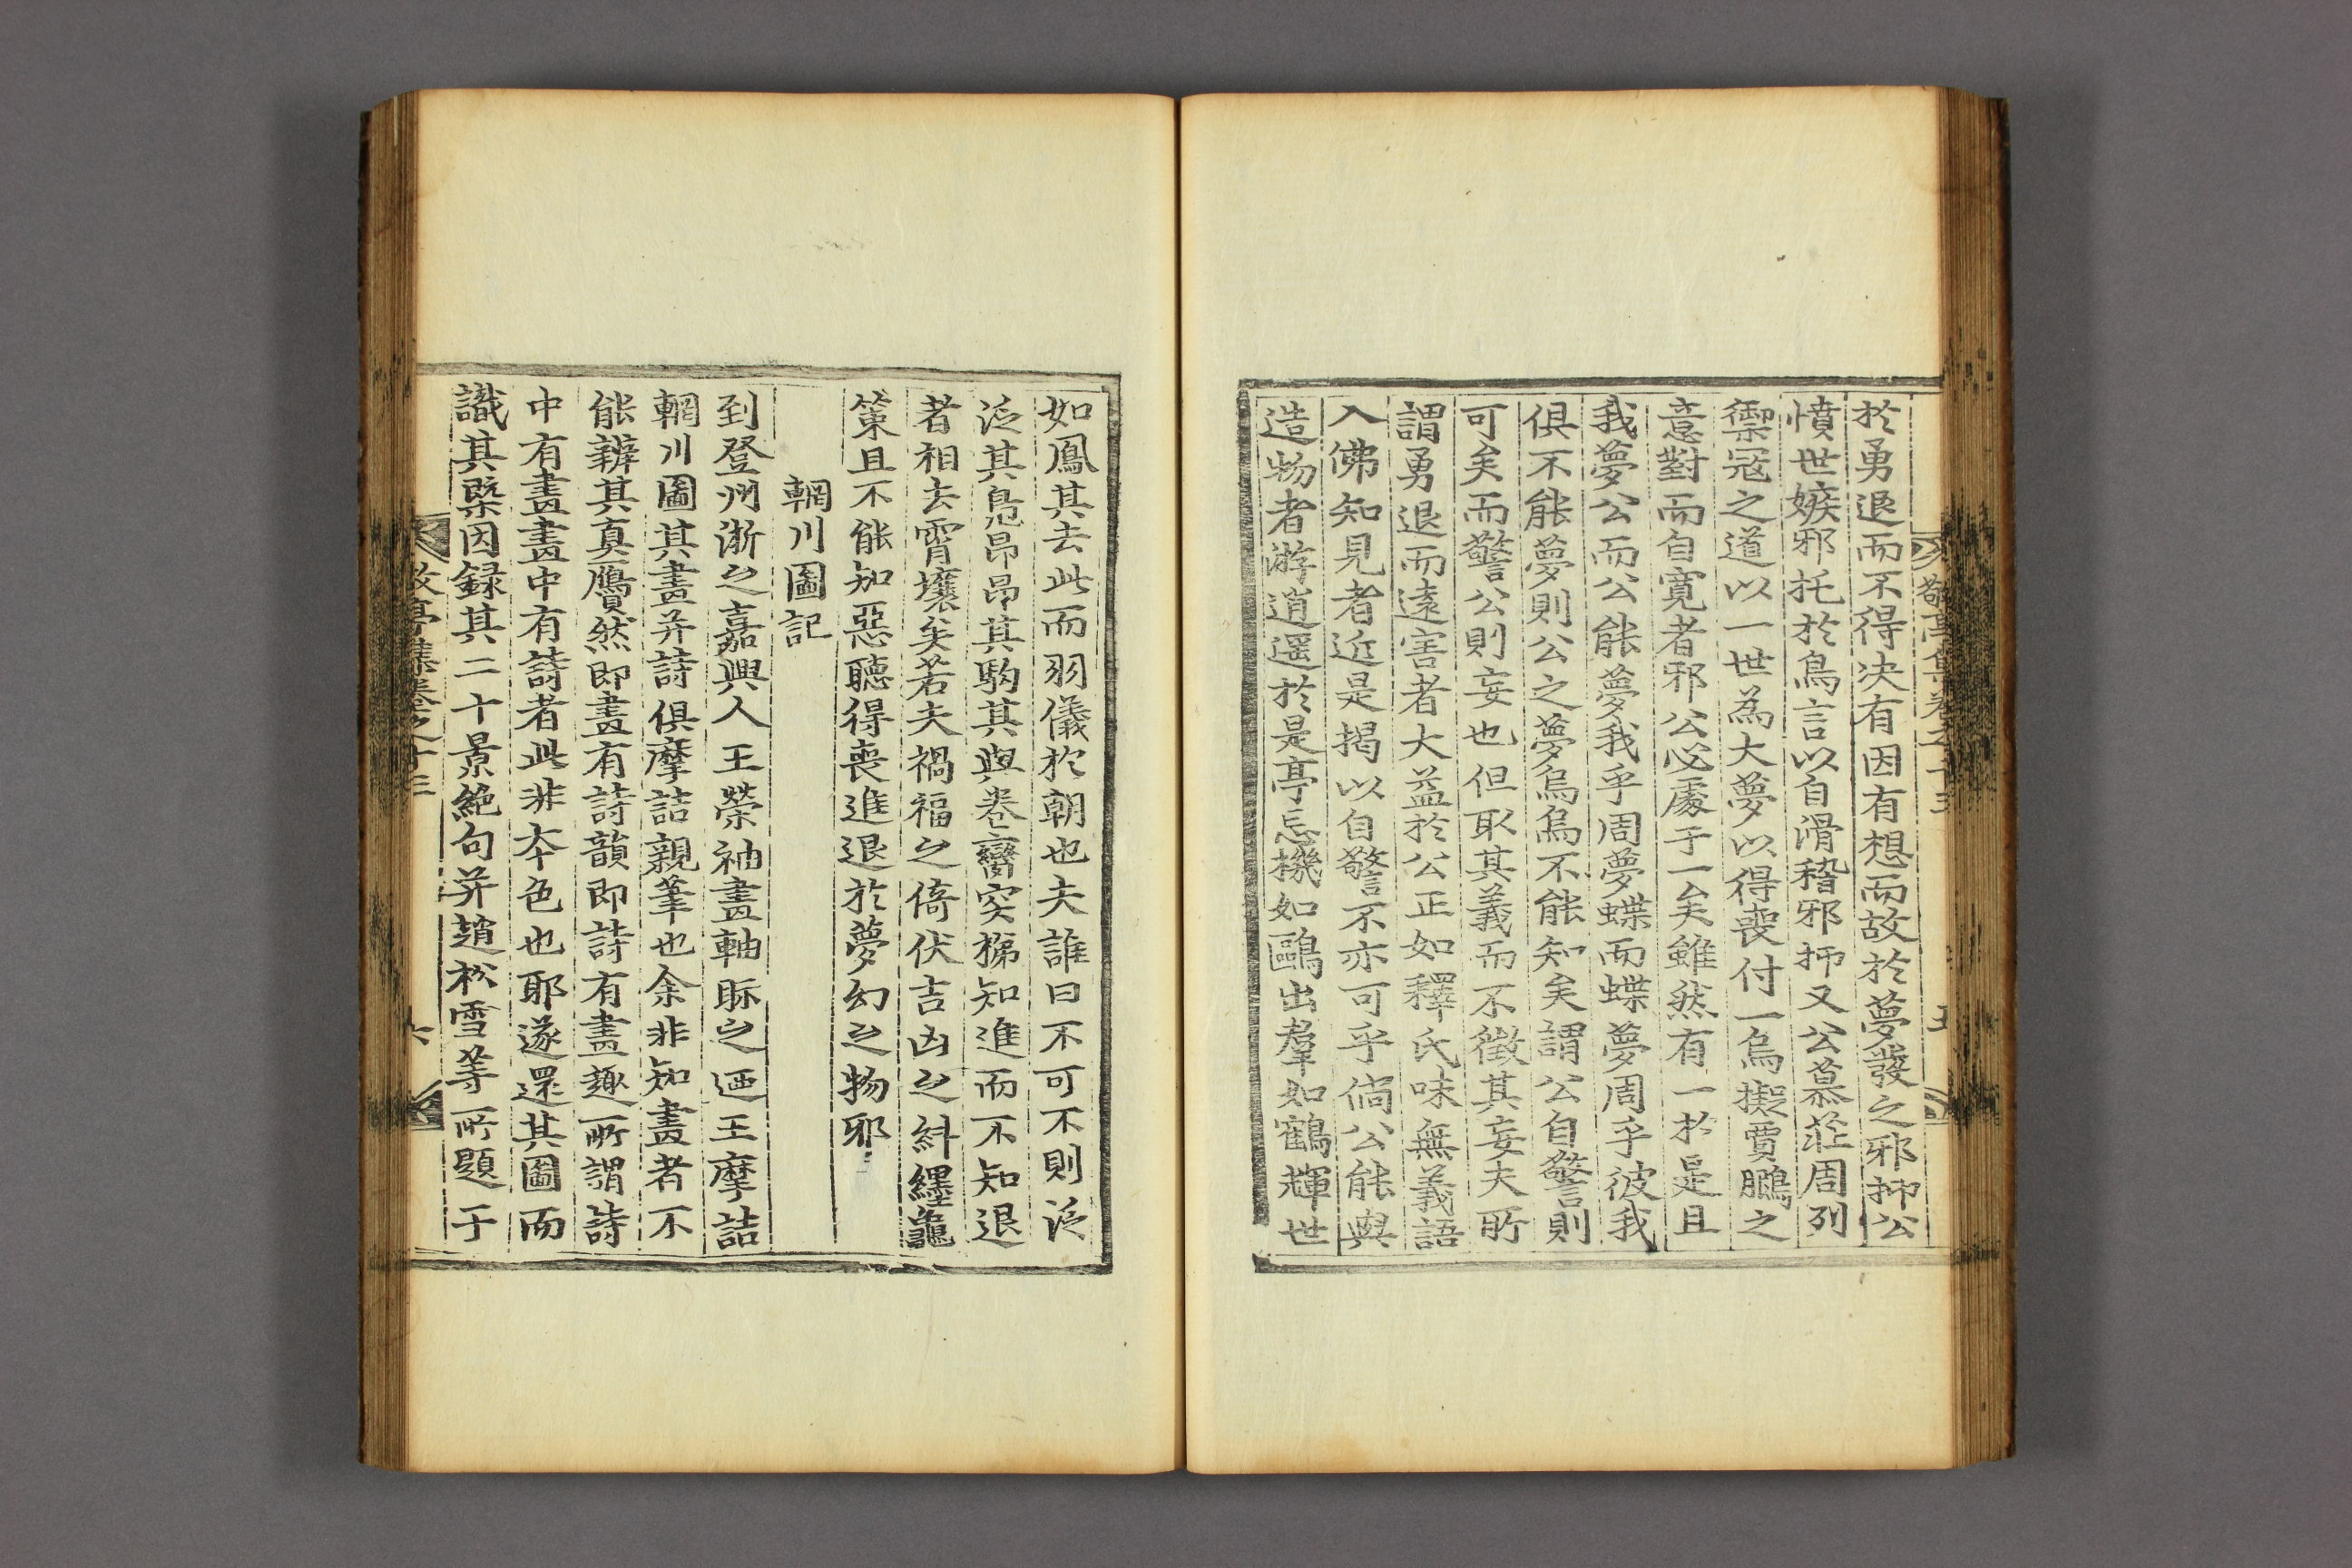 敬亭集卷之十三
五
於勇退而不得決有因有想而故於夢發之邪抑公
憤世嫉邪托於鳥言以自滑稽邪抑又公慕莊周列
禦冦之道以一世為大夢以得喪付一烏擬賈鵬之
意對而自寬者邪公必處于一矣雖然有一於是且
我夢公而公能夢我乎周夢蝶而蝶夢周乎彼我
俱不能夢則公之夢烏烏不能知矣謂公自警則
可矣而警公則妄也但取其義而不徵其妄夫所
謂勇退而遠害者大益於公正如釋氏味無義語
入佛知見者近是揭以自警不亦可乎倘公能與
造物者游逍遥於是亭忘機如鷗出羣如鶴輝世
如鳳其去此而羽儀於朝也夫誰曰不可不則泛
泛其鳧昂昂其駒其與巻臠突猻知進而不知退
者相去霄壤矣若夫禍福之倚伏吉凶之糾纆龜
策且不能知惡聽得喪進退於夢幻之物邪
輞川圖記
到登州浙之嘉興人王榮袖畫軸眎之迺王摩詰
輞川圖其畫并詩俱摩詰親筆也余非知畫者不
能辨其真贗然即畫有詩韻即詩有畫趣所謂詩
中有畫畫中有詩者此非夲色也耶遂還其圖而
識其槩因録其二十景絶句并趙松雪等所題于
敬亭集卷之十三
六